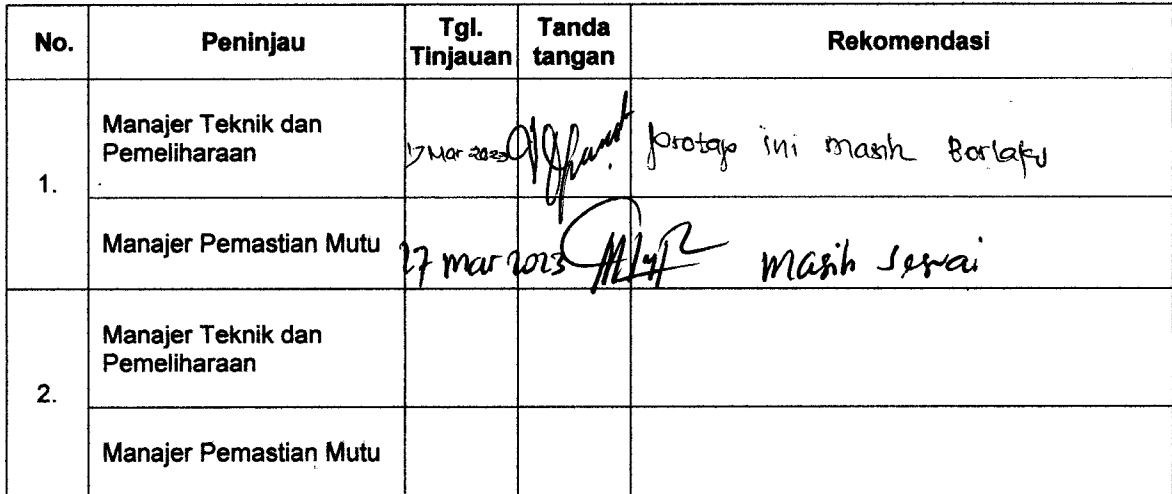 No. Peninjau Tgl. Tinjauan Tanda tangan Rekomendasi
1.
Manajer Teknik dan
Pemeliharaan
17 Mar 2023
protap ini masih Berlaku
Manajer Pemastian Mutu
27 mar 2023
masih sesuai
2.
Manajer Teknik dan
Pemeliharaan
Manajer Pemastian Mutu